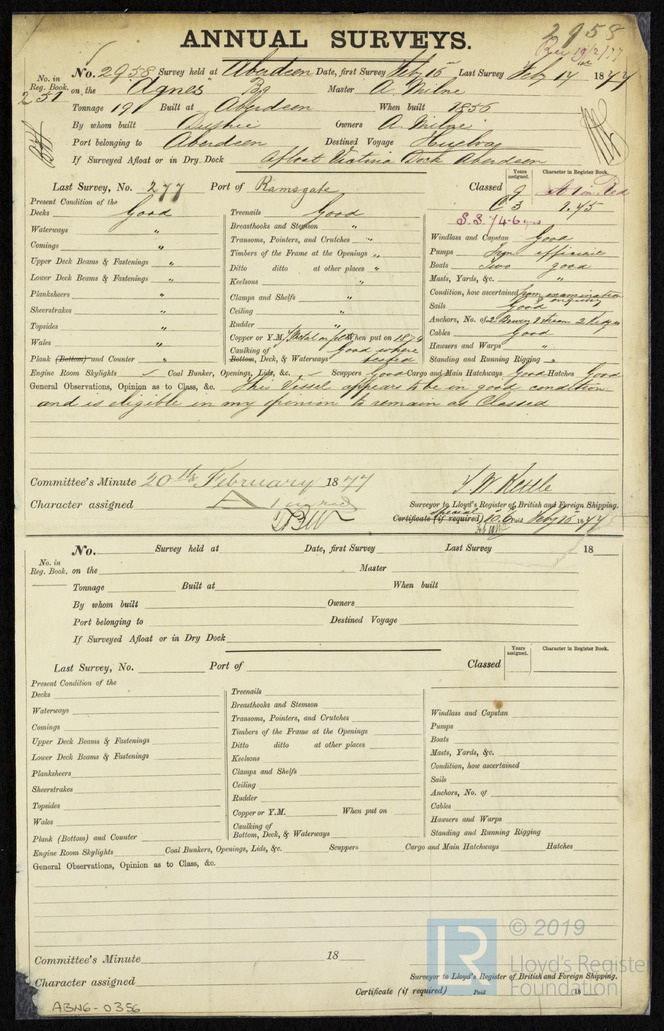 2958
ANNUAL SURVEYS.
Rec 19/2/77
No. in Reg. Book. No. 2958 Survey held at Aberdeen Date, first Survey Feby 15 Last Survey Feby 17 1877
251 on the "Agnes" Bg Master A. Milne
Tonnage 191 Built at Aberdeen When built 1855
By whom built Duthie Owners A. Milne
Port belonging to Aberdeen Destined Voyage Huelva
If Surveyed Afloat or in Dry Dock Afloat Victoria Dock Aberdeen
Years assigned. Character in Register Book.
Last Survey, No. 277 Port of Ramsgate Classed 9
C 3 1.75
S.S. 74-6
Present Condition of the
Decks Good
Waterways "
Comings "
Upper Deck Beams & Fastenings "
Lower Deck Beams & Fastenings "
Planksheers "
Sheerstrakes "
Topsides "
Wales "
Plank (Bottom) and Counter "
Treenails Good
Breasthooks and Stemson "
Transoms, Pointers, and Crutches "
Timbers of the Frame at the Openings "
Ditto ditto at other places "
Keelsons "
Clamps and Shelfs "
Ceiling "
Rudder "
Copper or Y.M. When put on 1876
Caulking of Bottom, Deck, & Waterways Good where tested
Windlass and Capstan Good
Pumps efficient
Boats Two good
Masts, Yards, &c. "
Condition, how ascertained from examination
Sails Good
Anchors, No. of 2 Bower 1 Stream 2 Kedges
Cables Good
Hawsers and Warps "
Standing and Running Rigging "
Engine Room Skylights Coal Bunker, Openings, Lids, &c. Scuppers Good Cargo and Main Hatchways Good Hatches Good
General Observations, Opinion as to Class, &c. This Vessel appears to be in good condition
and is eligible in my opinion to remain as Classed
Committee's Minute 20th February 1877
Character assigned A 1 in red
Surveyor to Lloyd's Register of British and Foreign Shipping.
Certificate (if required) special 10.6 Paid Feby 15 1877
No. Survey held at Date, first Survey Last Survey 18
No. in Reg. Book. on the Master
Tonnage Built at When built
By whom built Owners
Port belonging to Destined Voyage
If Surveyed Afloat or in Dry Dock
Years assigned. Character in Register Book.
Last Survey, No. Port of Classed
Present Condition of the
Decks
Waterways
Comings
Upper Deck Beams & Fastenings
Lower Deck Beams & Fastenings
Planksheers
Sheerstrakes
Topsides
Wales
Plank (Bottom) and Counter
Treenails
Breasthooks and Stemson
Transoms, Pointers, and Crutches
Timbers of the Frame at the Openings
Ditto ditto at other places
Keelsons
Clamps and Shelfs
Ceiling
Rudder
Copper or Y.M. When put on
Caulking of Bottom, Deck, & Waterways
Windlass and Capstan
Pumps
Boats
Masts, Yards, &c.
Condition, how ascertained
Sails
Anchors, No. of
Cables
Hawsers and Warps
Standing and Running Rigging
Engine Room Skylights Coal Bunkers, Openings, Lids, &c. Scuppers Cargo and Main Hatchways Hatches
General Observations, Opinion as to Class, &c.
Committee's Minute 18
Character assigned
Surveyor to Lloyd's Register of British and Foreign Shipping.
Certificate (if required) Paid 18
ABN6-0356
LR © 2019
Lloyd's Register
Foundation